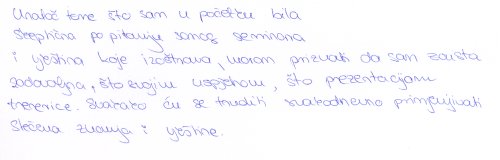 Unatoč tome što sam u početku bila
skeptična po pitanju samog seminara
i vještina koje izoštrava, moram priznati da sam zaista
zadovoljna, što svojim uspjehom, što prezentacijom
trenerice. Svakako ću se truditi svakodnevno primjenjivati
stečena znanja i vještine.